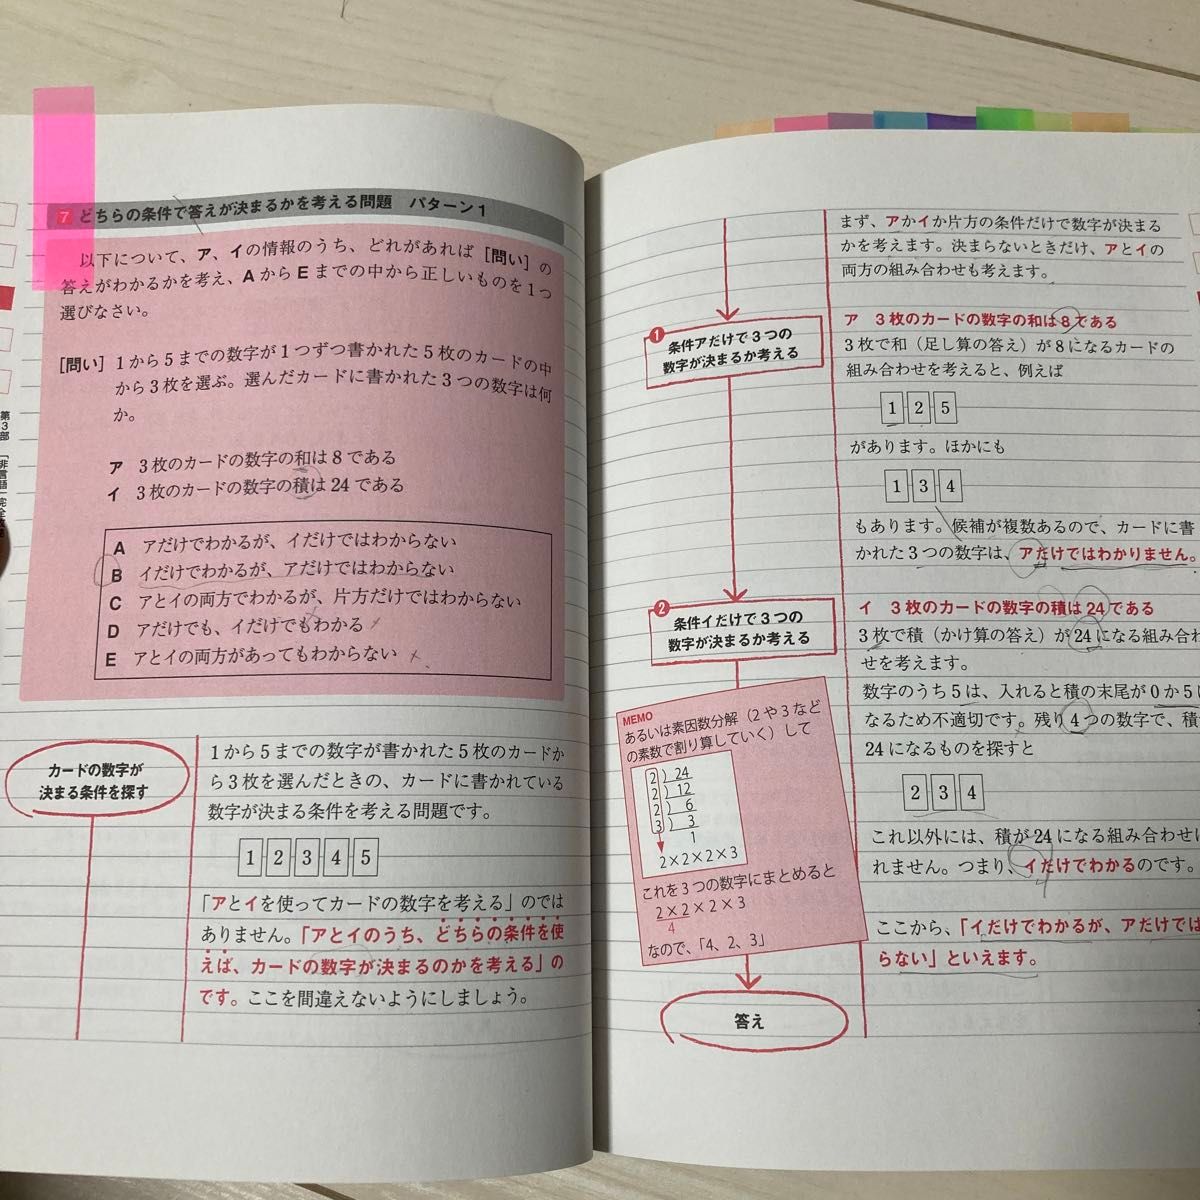 7 どちらの条件で答えが決まるかを考える問題 パターン1
以下について、ア、イの情報のうち、どれがあれば[問い]の
答えがわかるかを考え、AからEまでの中から正しいものを1つ
選びなさい。
[問い] 1から5までの数字が1つずつ書かれた5枚のカードの中
から3枚を選ぶ。選んだカードに書かれた3つの数字は何
か。
ア 3枚のカードの数字の和は8である
イ 3枚のカードの数字の積は24である
A アだけでわかるが、イだけではわからない
B イだけでわかるが、アだけではわからない
C アとイの両方でわかるが、片方だけではわからない
D アだけでも、イだけでもわかる
E アとイの両方があってもわからない
第3部 「非言語」完全
カードの数字が
決まる条件を探す
1から5までの数字が書かれた5枚のカードか
ら3枚を選んだときの、カードに書かれている
数字が決まる条件を考える問題です。
1 2 3 4 5
「アとイを使ってカードの数字を考える」のでは
ありません。「アとイのうち、どちらの条件を使
えば、カードの数字が決まるのかを考える」の
です。ここを間違えないようにしましょう。
まず、アかイか片方の条件だけで数字が決まる
かを考えます。決まらないときだけ、アとイの
両方の組み合わせも考えます。
1
条件アだけで3つの
数字が決まるか考える
ア 3枚のカードの数字の和は8である
3枚で和（足し算の答え）が8になるカードの
組み合わせを考えると、例えば
1 2 5
があります。ほかにも
1 3 4
もあります。候補が複数あるので、カードに書
かれた3つの数字は、アだけではわかりません。
2
条件イだけで3つの
数字が決まるか考える
イ 3枚のカードの数字の積は24である
3枚で積（かけ算の答え）が24になる組み合わ
せを考えます。
数字のうち5は、入れると積の末尾が0か5に
なるため不適切です。残り4つの数字で、積
24になるものを探すと
2 3 4
これ以外には、積が24になる組み合わせは
れません。つまり、イだけでわかるのです。
ここから、「イだけでわかるが、アだけでは
らない」といえます。
MEMO
あるいは素因数分解（2や3など
の素数で割り算していく）して
2)24
2)12
2)6
3)3
1
2×2×2×3
これを3つの数字にまとめると
2×2×2×3
4
なので、「4、2、3」
答え